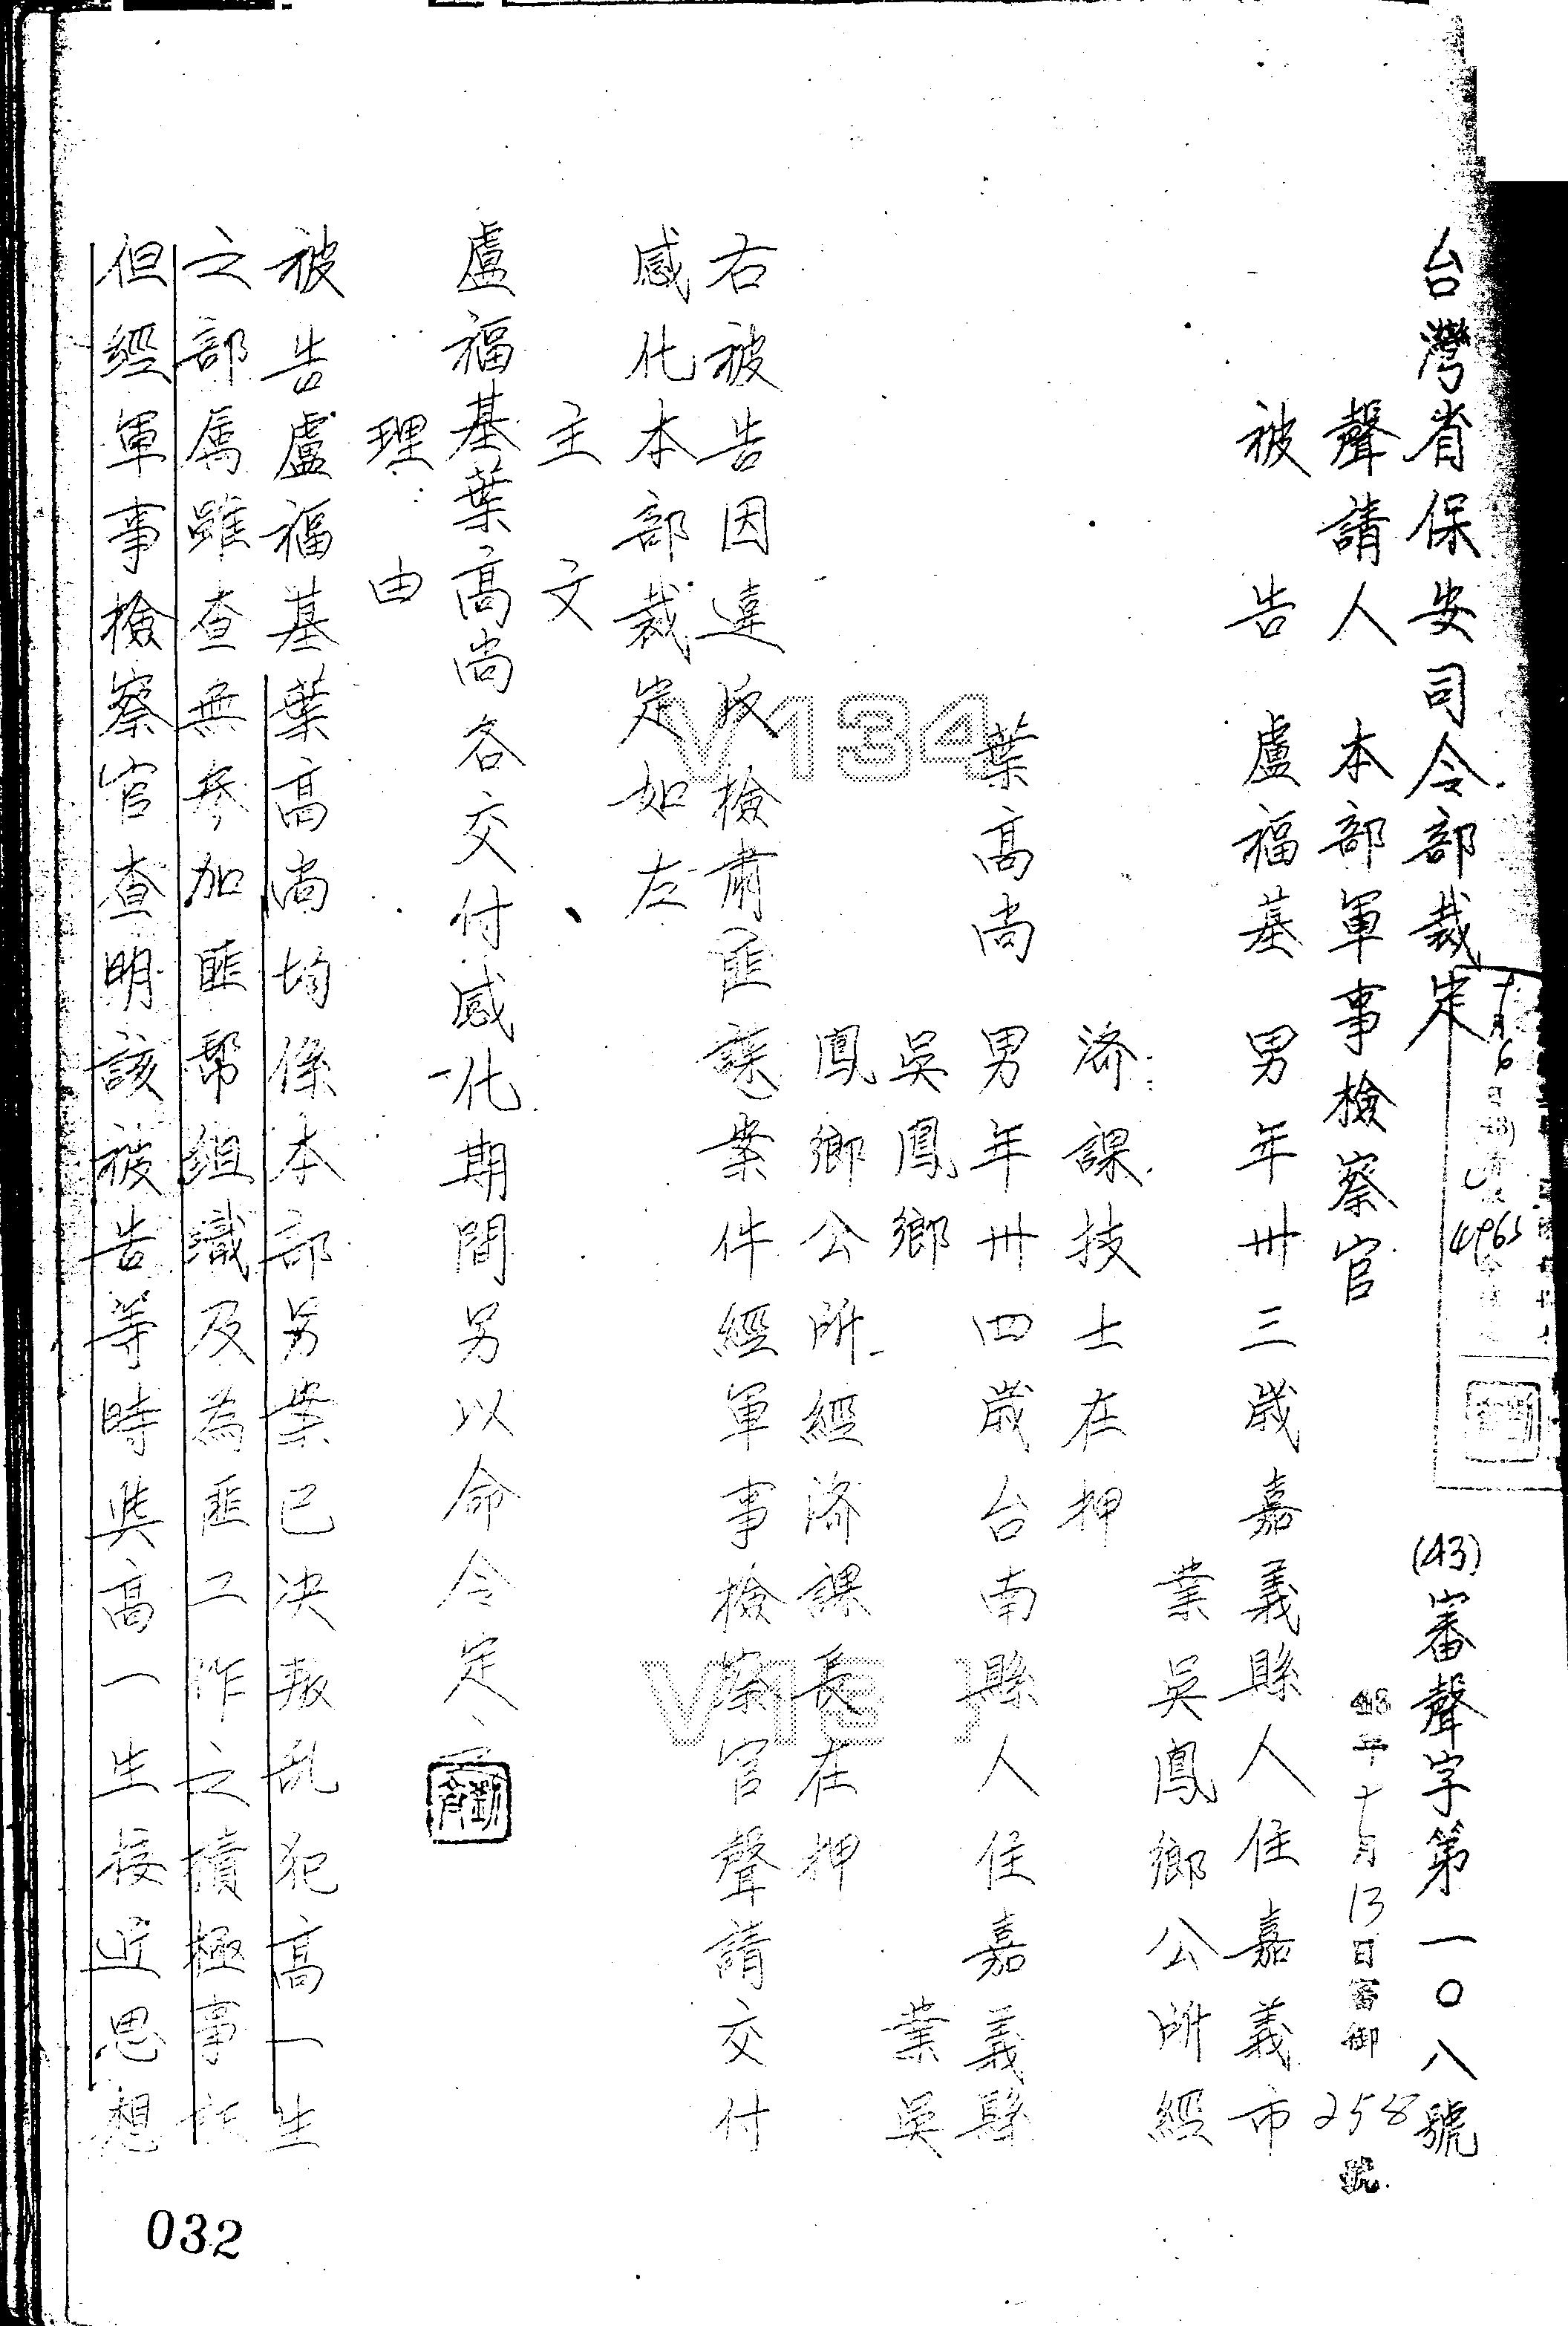 台灣省保安司令部裁定
(43)審聲字第一〇八號
十月6日
4965
聲請人　本部軍事檢察官
43年十月13日審御258號
被告　盧福基　男年卅三歲嘉義縣人住嘉義市
業吳鳳鄉公所經
濟課技士在押
葉高尚　男年卅四歲台南縣人住嘉義縣
吳鳳鄉　業吳
鳳鄉公所經濟課長在押
右被告因違反檢肅匪諜案件經軍事檢察官聲請交付
感化本部裁定如左
主文
盧福基葉高尚各交付感化期間另以命令定之
理由
被告盧福基葉高尚均係本部另案已決叛乱犯高一生
之部属雖查無參加匪幫組織及為匪工作之積極事証
但經軍事檢察官查明該被告等時與高一生接近思想
V134
032